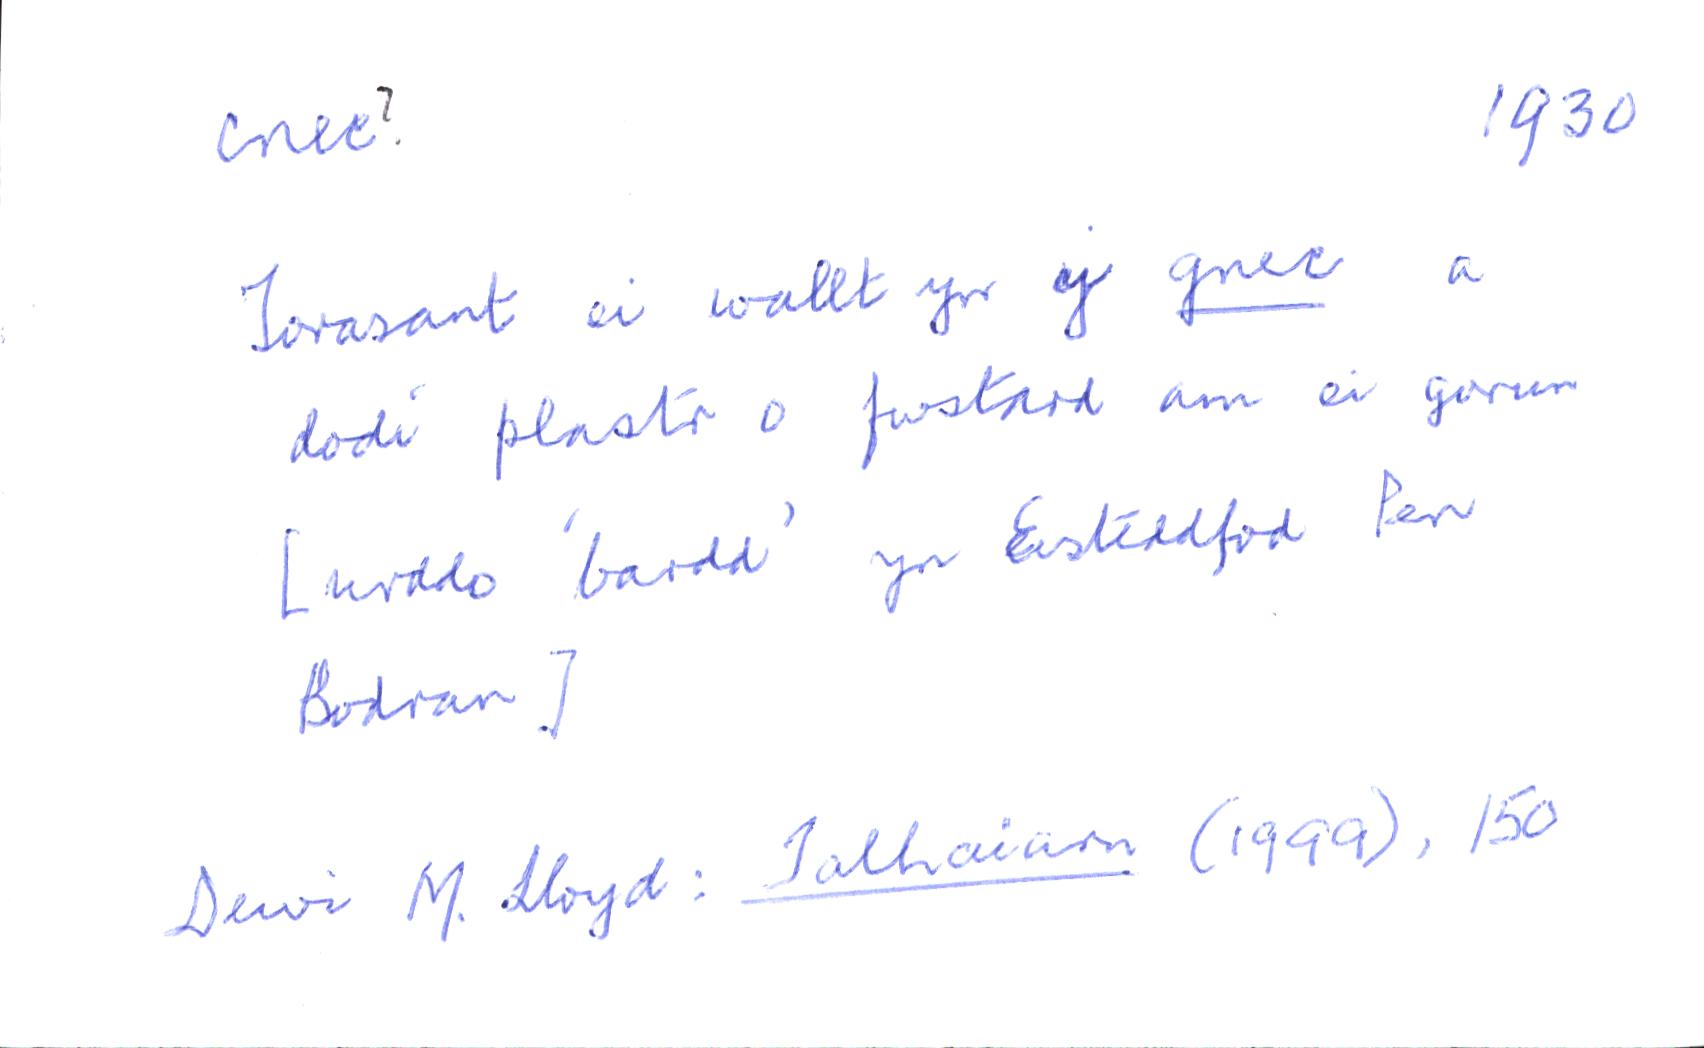 cnec?
1930
Torasant ei wallt yn ei gnec a
dodi plastr o fwstard am ei gorun
[urddo 'bardd' yn Eisteddfod Pen
Bodran]
Dewi M. Lloyd: Talhaiarn (1999), 150